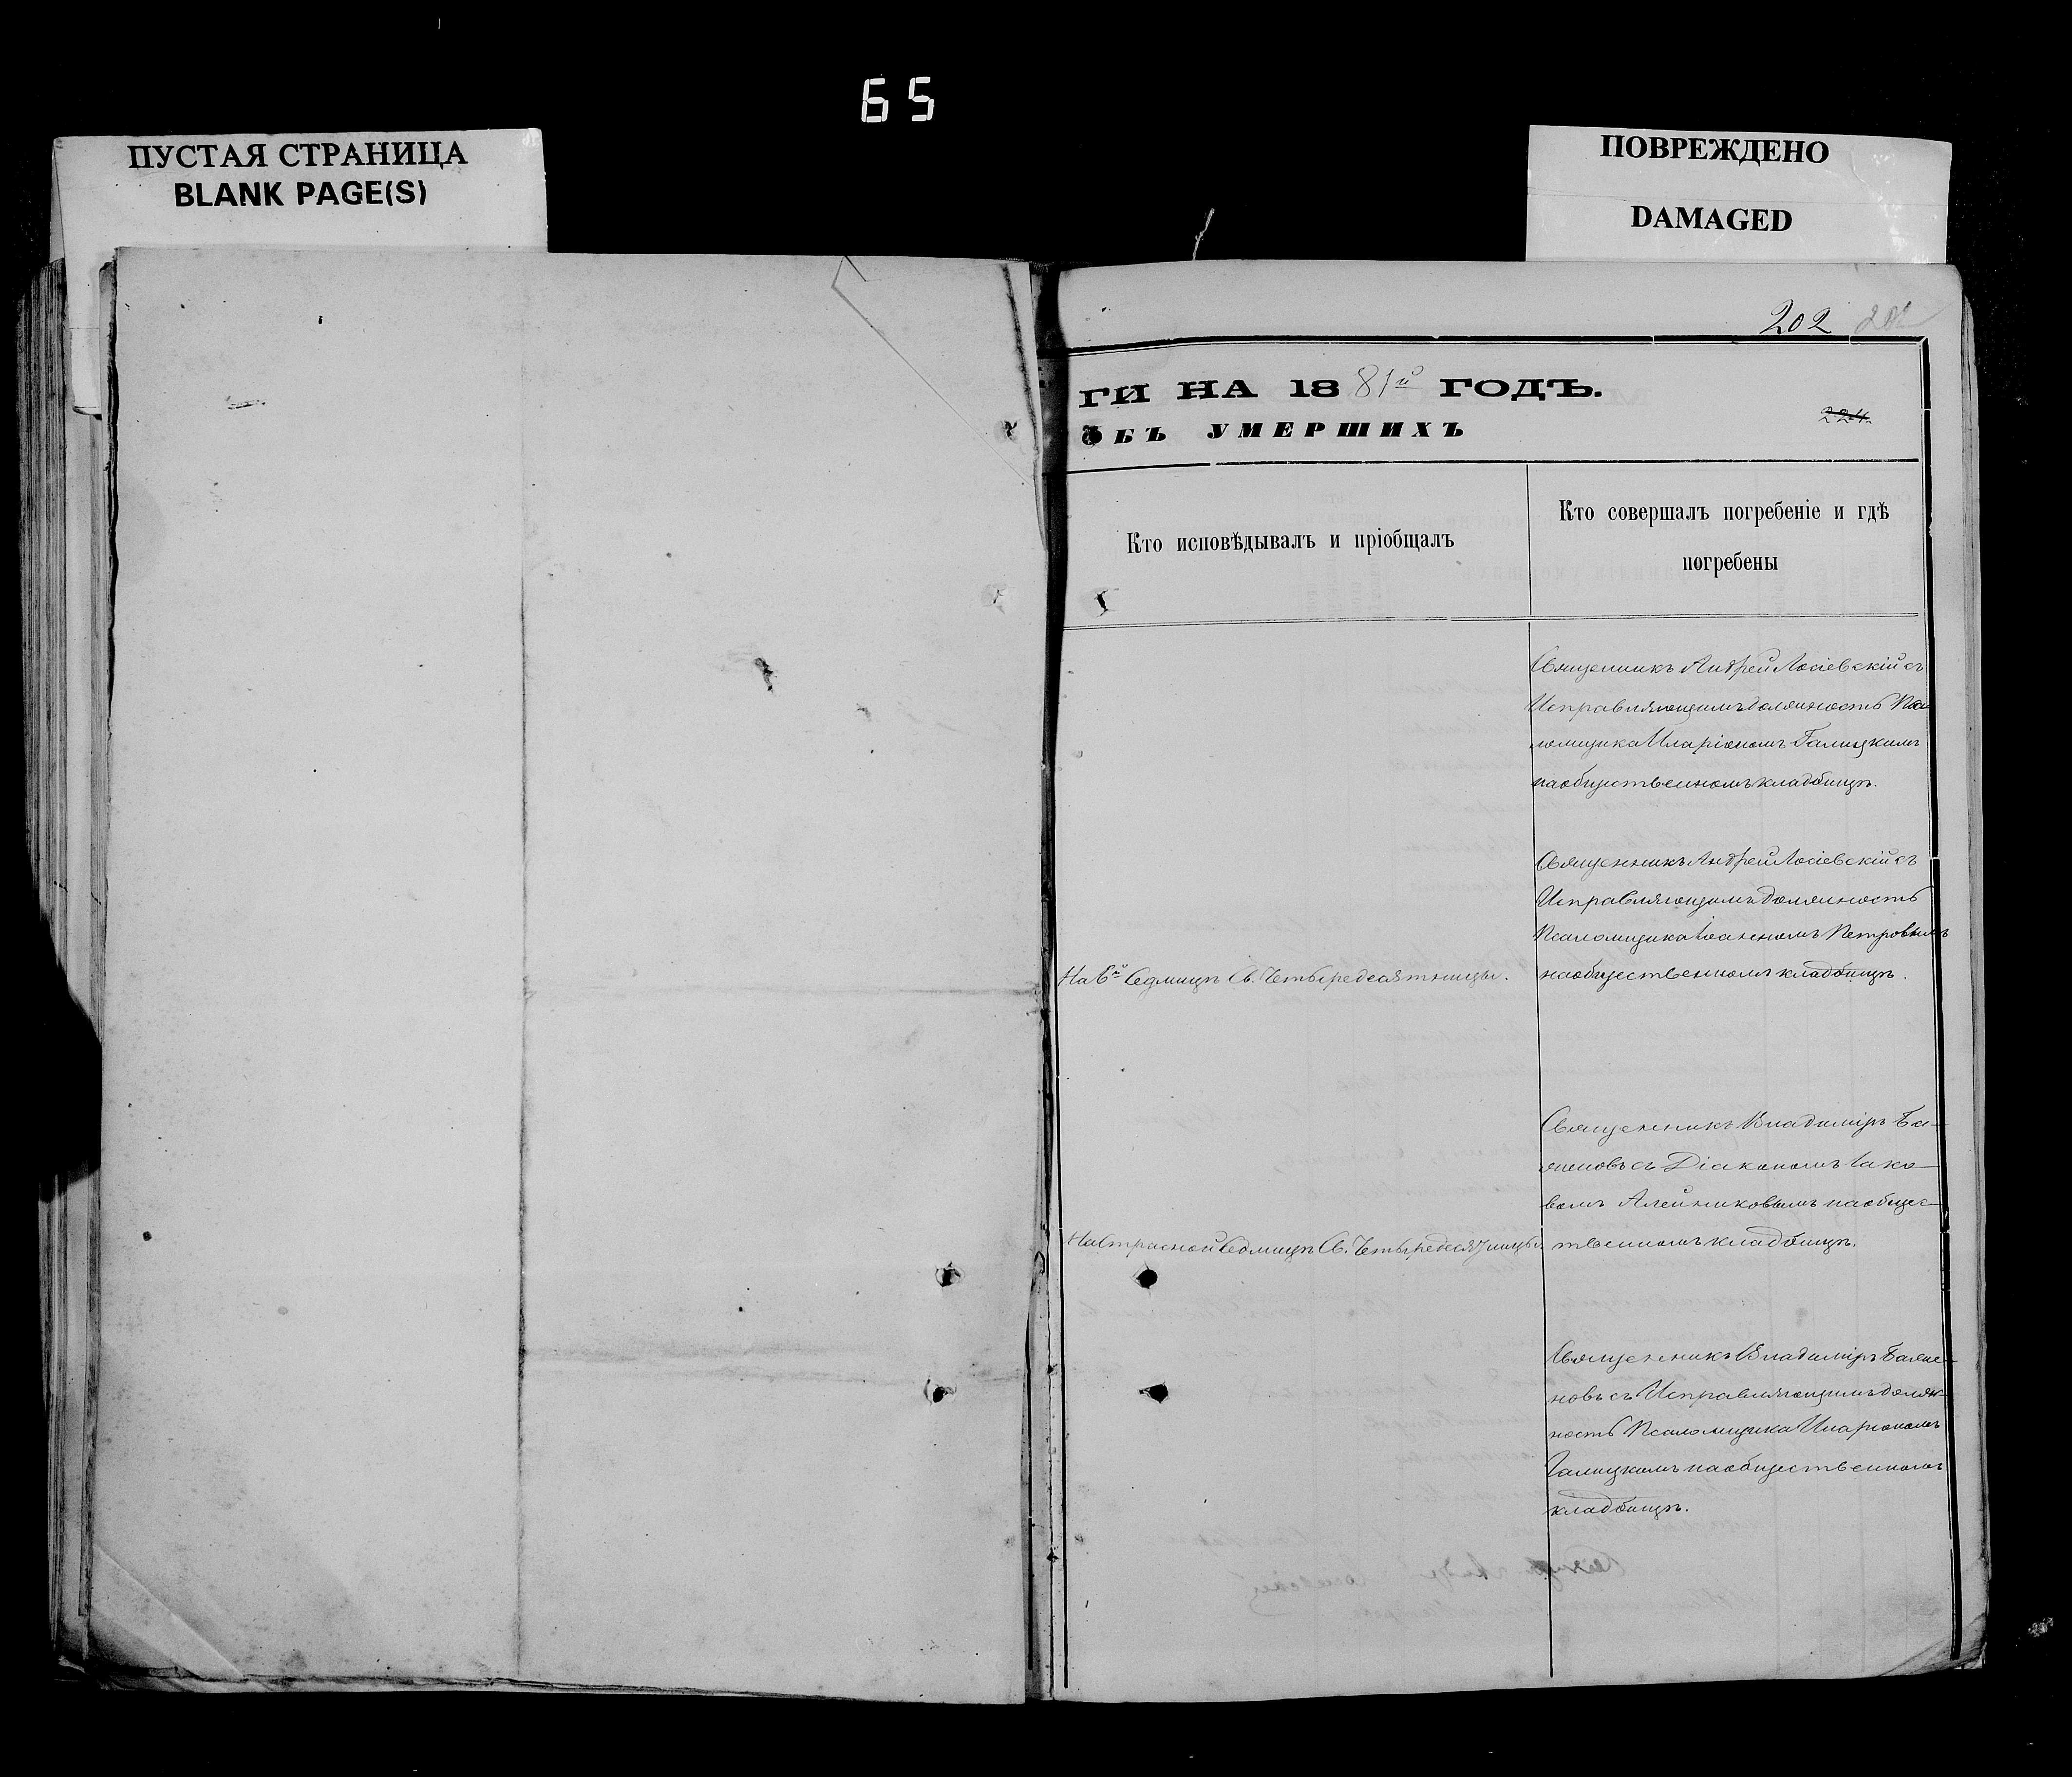 65
ПУСТАЯ СТРАНИЦА
BLANK PAGE(S)
ПОВРЕЖДЕНО
DAMAGED
202
ГИ НА 1881й ГОДЪ.
ОБЪ УМЕРШИХЪ
224.
Кто исповѣдывалъ и пріобщалъ
Кто совершалъ погребеніе и гдѣ
погребены
Священникъ Андрей Лосіевскій съ
Исправляющимъ должность Пса
ломщика Иларіономъ Галицкимъ
на общественномъ кладбищѣ.
Священникъ Андрей Лосіевскій съ
Исправляющимъ должность
Псаломщика Іоанномъ Петровымъ
на общественномъ кладбищѣ.
На 6й Седмицѣ Св. Четыредесятницы.
Священникъ Владиміръ Ба-
женовъ съ Діакономъ Іако-
вомъ Алейниковымъ на общес-
твенномъ кладбищѣ.
На Страсной Седмицѣ Св. Четыредесятницы
Священникъ Владиміръ Баже-
новъ съ Исправляющимъ долж-
ность Псаломщика Иларіономъ
Галицкимъ на общественномъ
кладбищѣ.